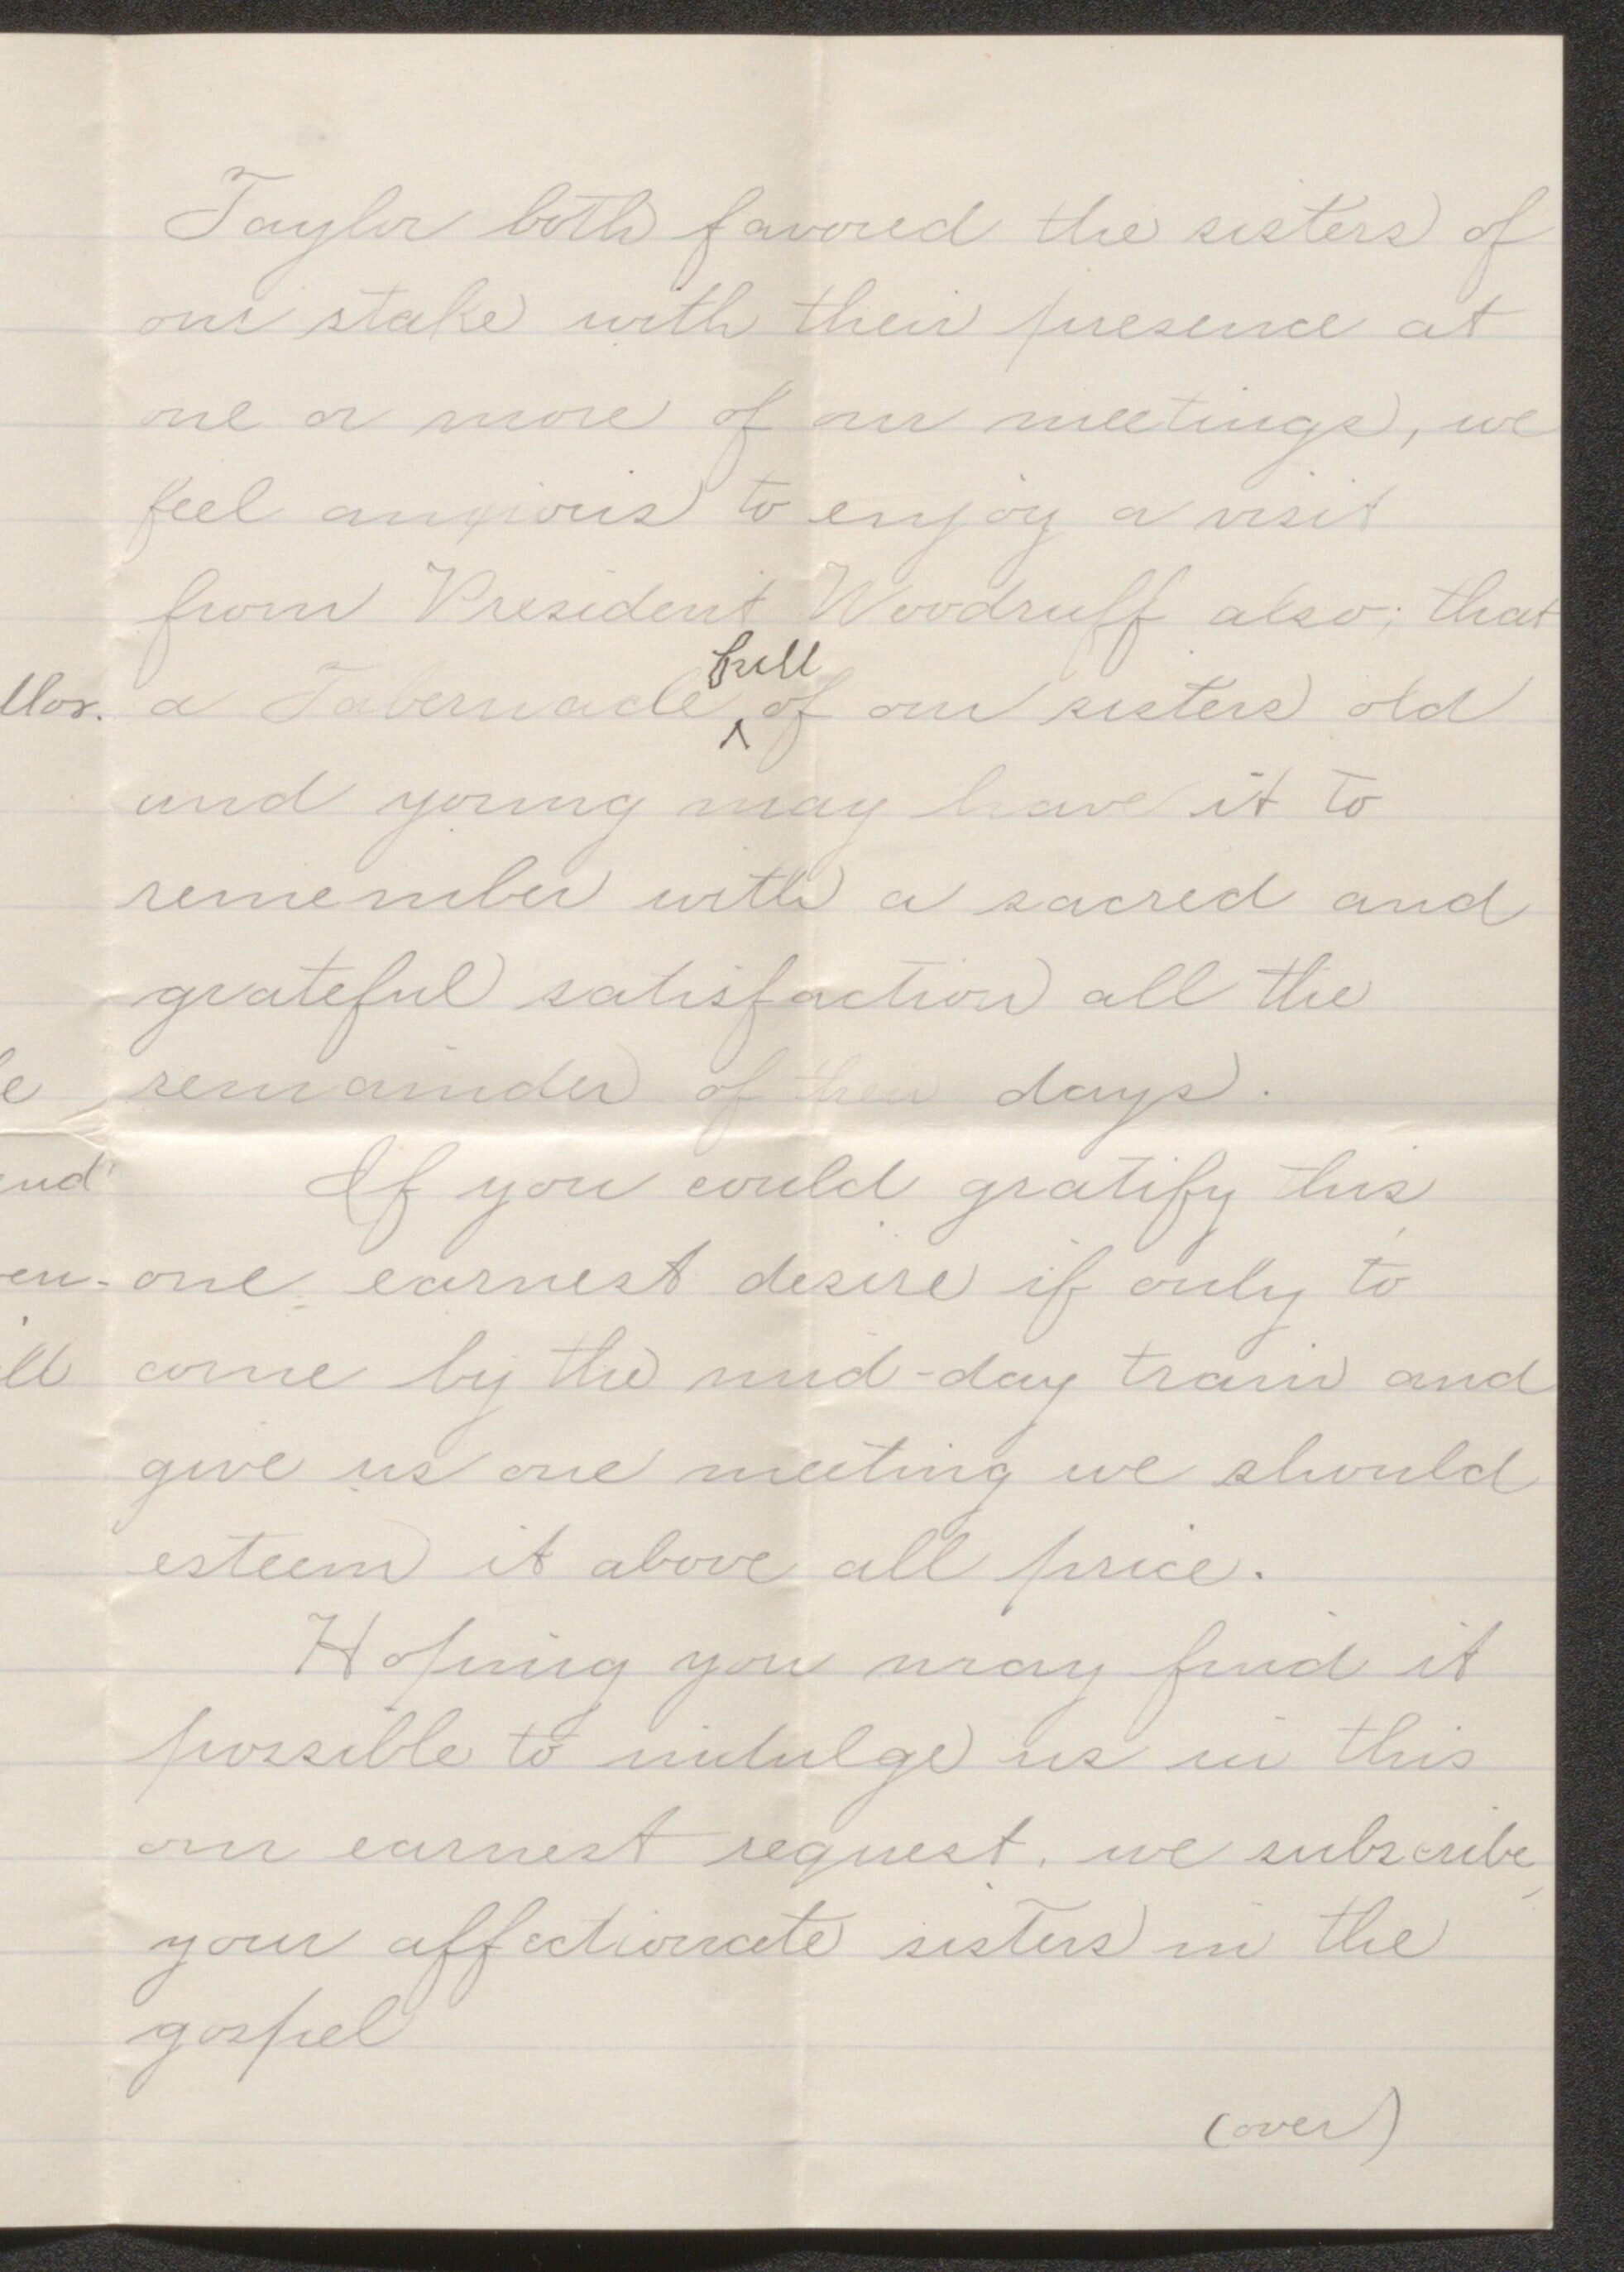 Taylor both favored the sisters of
our stake with their presence at
one or more of our meetings, we
feel anxious to enjoy a visit
from President Woodruff also; that
full
a Tabernacle ^ of our sisters old
and young may have it to
remember with a sacred and
grateful satisfaction all the
remainder of their days.
If you could gratify this
one earnest desire if only to
come by the mid-day train and
give us one meeting we should
esteem it above all price.
Hoping you may find it
possible to indulge us in this
our earnest request, we subscribe,
your affectionate sisters in the
gospel
(over)